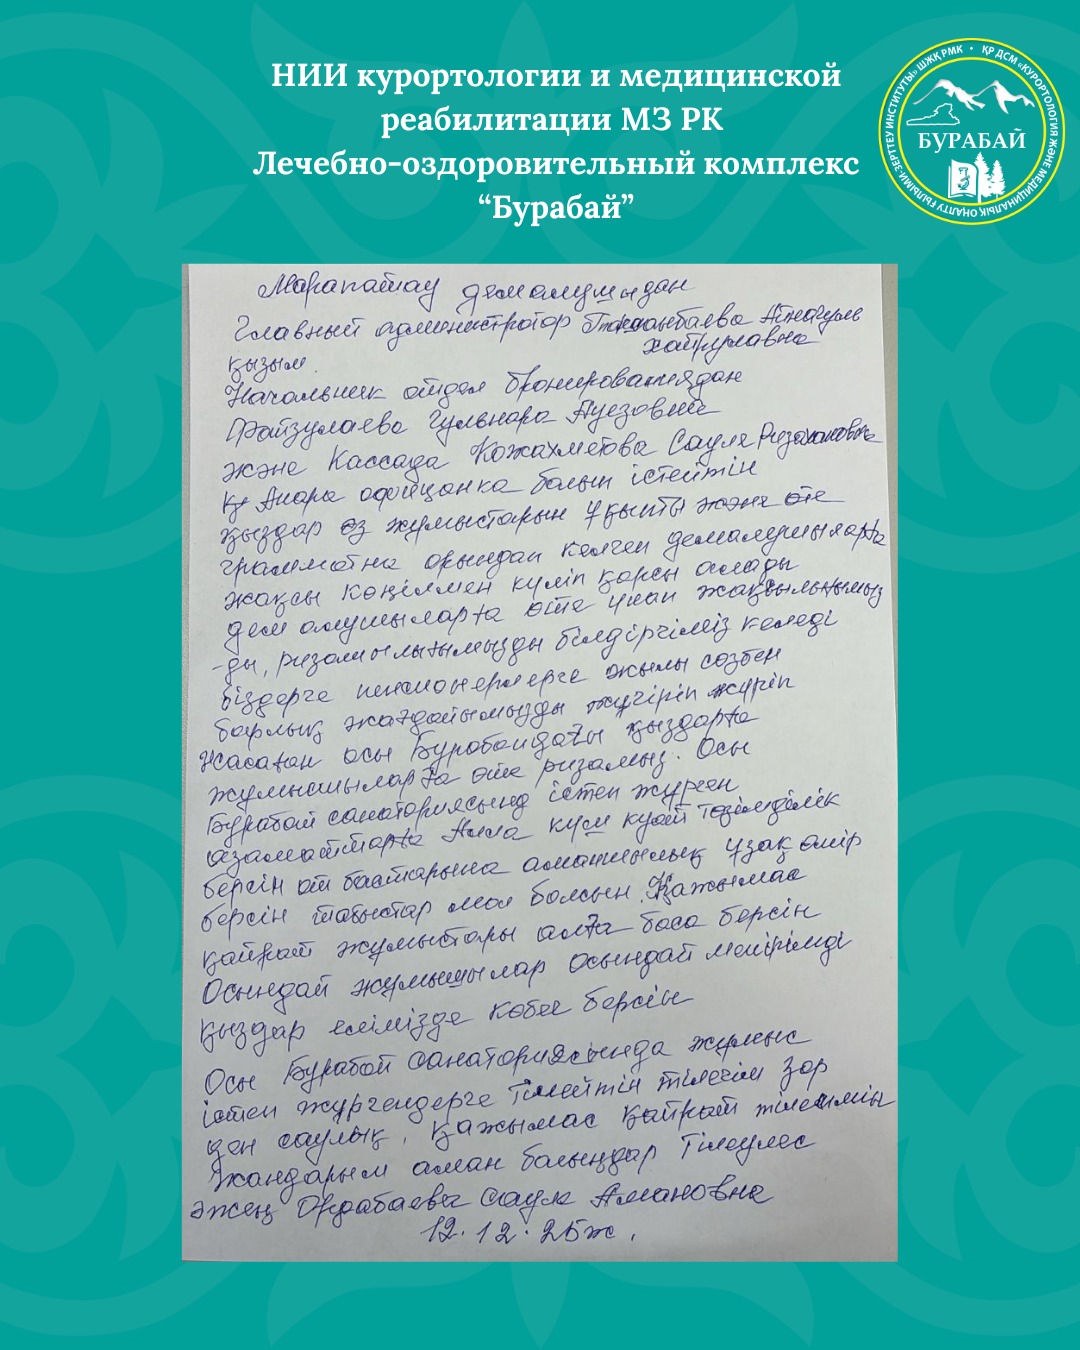 НИИ курортологии и медицинской
реабилитации МЗ РК
Лечебно-оздоровительный комплекс
“Бурабай”
ҚР ДСМ «КУРОРТОЛОГИЯ ЖӘНЕ МЕДИЦИНАЛЫҚ ОҢАЛТУ ҒЫЛЫМИ-ЗЕРТТЕУ ИНСТИТУТЫ» ШЖҚ РМК
БУРАБАЙ
Марапатау демалушыдан
Главный администратор Айнагуль
хайрулавна
қызым.
Начальник отдел бронированиядан
Файзулаева Гульнара Ауезовна
және Кассада Кожахметова Сауле
қ Анара официанка болып істейтін
қыздар өз жұмыстарын ұқыпты және өте
грамматна орындап келген демалушыларға
жақсы көңілмен күліп қарсы алады
демалушыларға өте ұнап жақсылығымыз
-ды, ризашылығымызды білдіргіміз келеді
біздерге пенсионерлерге жылы сөзбен
барлық жағдайымызды жүгіріп жүріп
жасаған осы Бурабайдағы қыздарға
жұмысшыларға өте ризамыз. Осы
Бурабай санаториясынд істеп жүрген
азаматтарға Алла күш қуат төзімділік
берсін от бастарына аманшылық ұзақ өмір
берсін табыстар мол болсын. Қажымас
қайрат жұмыстары алға баса берсін
Осындай жұмышылар осындай мейірімді
қыздар елімізде көбее берсін
Осы Бурабай санаториясында жұмыс
істеп жүргендерге Тілейтін тілегім зор
ден саулық, қажымас қайрат тілеймін
Жандарым аман болыңдар Тілеулес
әжең Ордабаева Сауле Амановна
12.12.25ж.